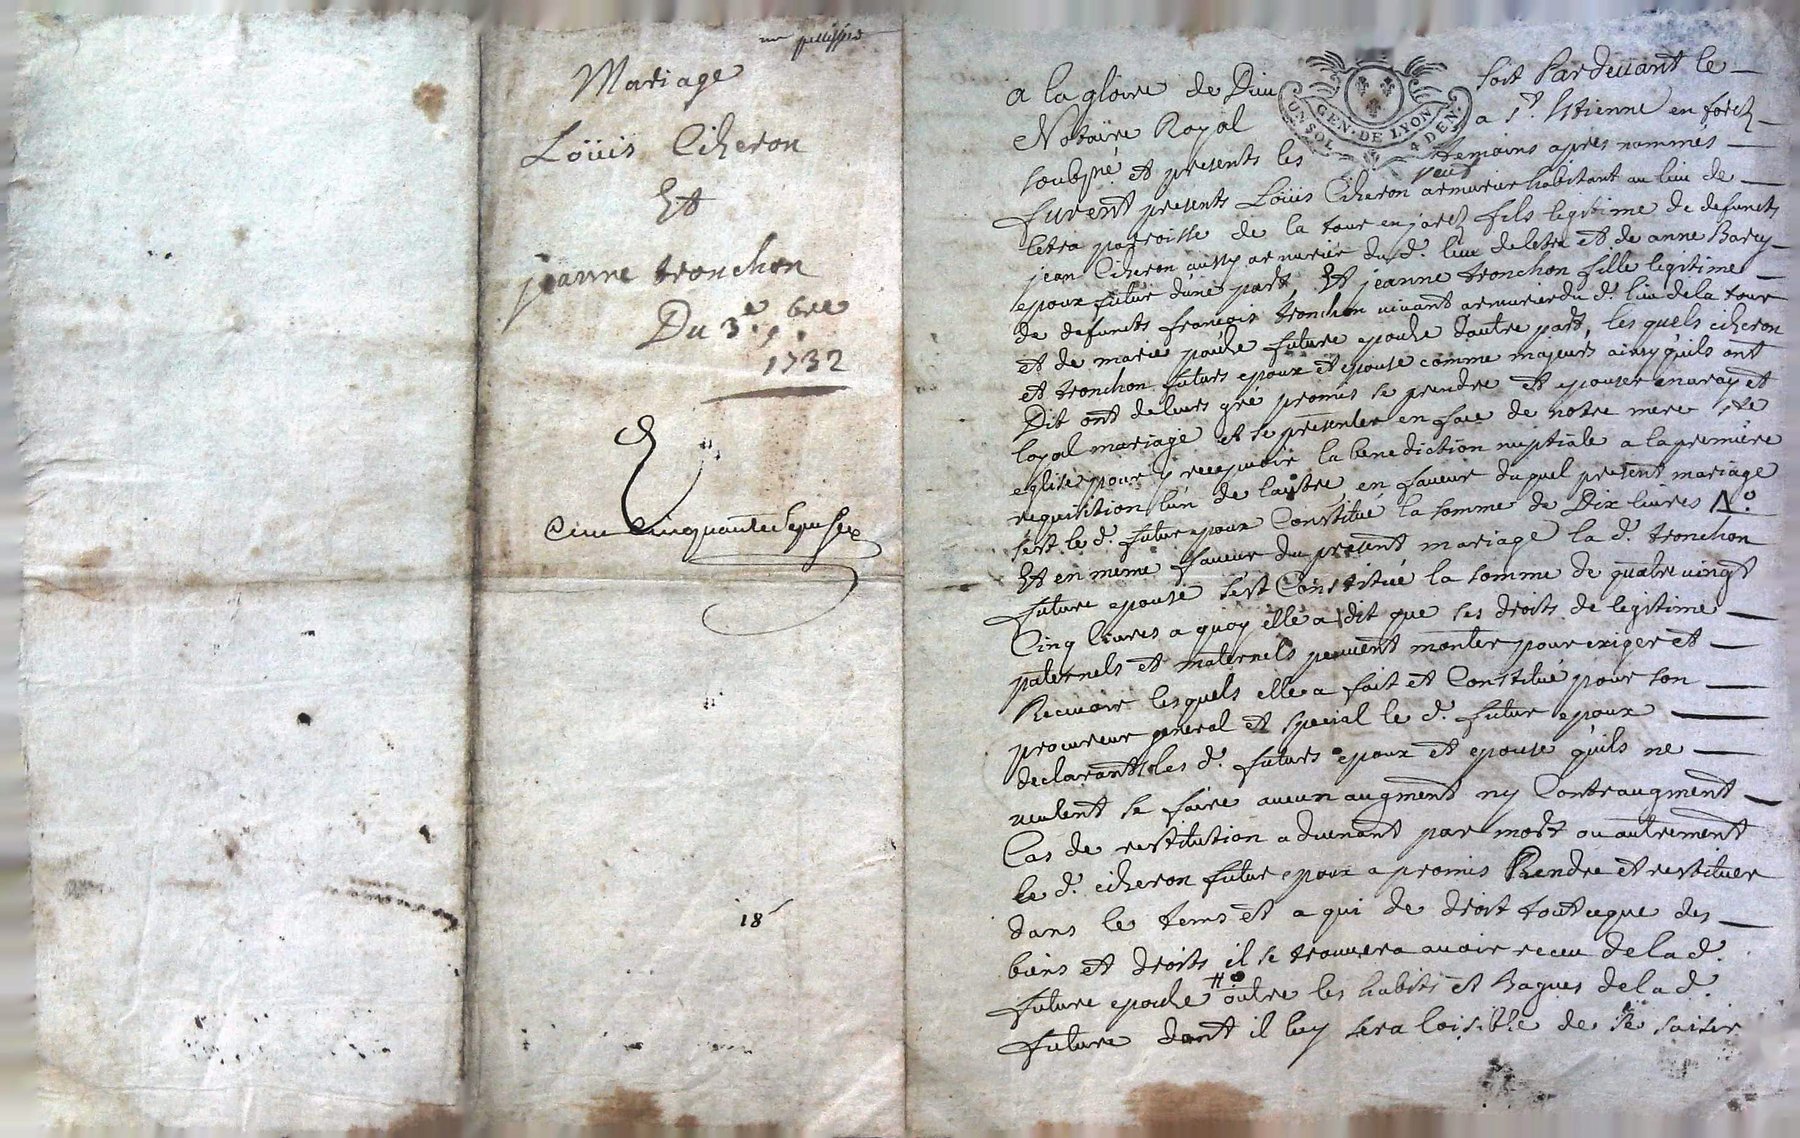 Mariage
Loüis Ciheron
Et
jeanne tronchon
Du 3e. 9bre
1732
Cent Cinquante Sept
18
GEN. DE LYON
UN SOL 4 DEN.
a la gloire de Dieu soit Pardeuant le
Notaire Royal a St. Estienne en forest
soubsné et presents les temoins apres nommés
veuf
furent presents Loüis Ciheron armurier habitant au lieu de
letra parroisse de la tour en jarest fils legitime de defuncts
jean Ciheron aussy armurier du d. lieu de letra et de anne Barey
epoux futur dune part, Et jeanne tronchon fille legitime
de defuncts françois tronchon viuant armurier du d. lieu de la tour
et de marie future epouse dautre part, les quels ciheron
et tronchon futurs epoux et epouse comme majeurs ainsy quils ont
Dit ont de leurs gré promis se prendre et epouser en vray et
loyal mariage et se presenter en face de notre mere ste
eglise pour y recepuoir la benediction nuptiale a la premiere
requisition lun de lautre en faueur duquel present mariage
sest le d. futur epoux Constitué la somme de Dix liures
Et en meme faueur du present mariage la d. tronchon
future epouse sest Constitué la somme de quatre uingt
Cinq liures a quoy elle a dit que ses droits de legitime
paternels et maternels peuuent monter pour exiger et
Receuoir lesquels elle a fait et Constitué pour son
procureur general et special le d. futur epoux
declarants les d. futurs epoux et epouse quils ne
ueulent se faire aucun augment ny Contraugment
Cas de restitution aduenant par mort ou autrement
le d. ciheron futur epoux a promis Rendre et restituer
dans le tems et a qui de droit tout ce que des
biens et droits il se trouuera auoir receu de la d.
future epouse outre les habits et Bagues de la d.
future dont il luy sera loisible de se saisir